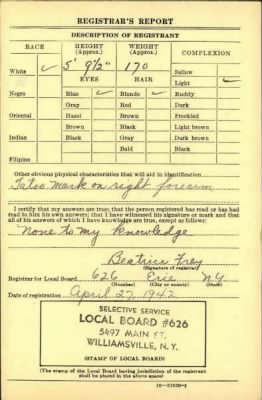 REGISTRAR'S REPORT
DESCRIPTION OF REGISTRANT
RACE HEIGHT (Approx.) WEIGHT (Approx.) COMPLEXION
White ✓ 5' 9½" 170 Sallow
EYES HAIR Light ✓
Negro Blue ✓ Blonde ✓ Ruddy
Gray Red Dark
Oriental Hazel Brown Freckled
Brown Black Light brown
Indian Black Gray Dark brown
Bald Black
Filipino
Other obvious physical characteristics that will aid in identification
Tatoo mark on right forearm
I certify that my answers are true; that the person registered has read or has had
read to him his own answers; that I have witnessed his signature or mark and that
all of his answers of which I have knowledge are true, except as follows:
None to my knowledge
Beatrice Frey
(Signature of registrar)
Registrar for Local Board 626 Erie NY
(Number) (City or county) (State)
Date of registration April 27, 1942
SELECTIVE SERVICE
LOCAL BOARD #626
5497 MAIN ST.
WILLIAMSVILLE, N.Y.
(STAMP OF LOCAL BOARD)
(The stamp of the Local Board having jurisdiction of the registrant
shall be placed in the above space)